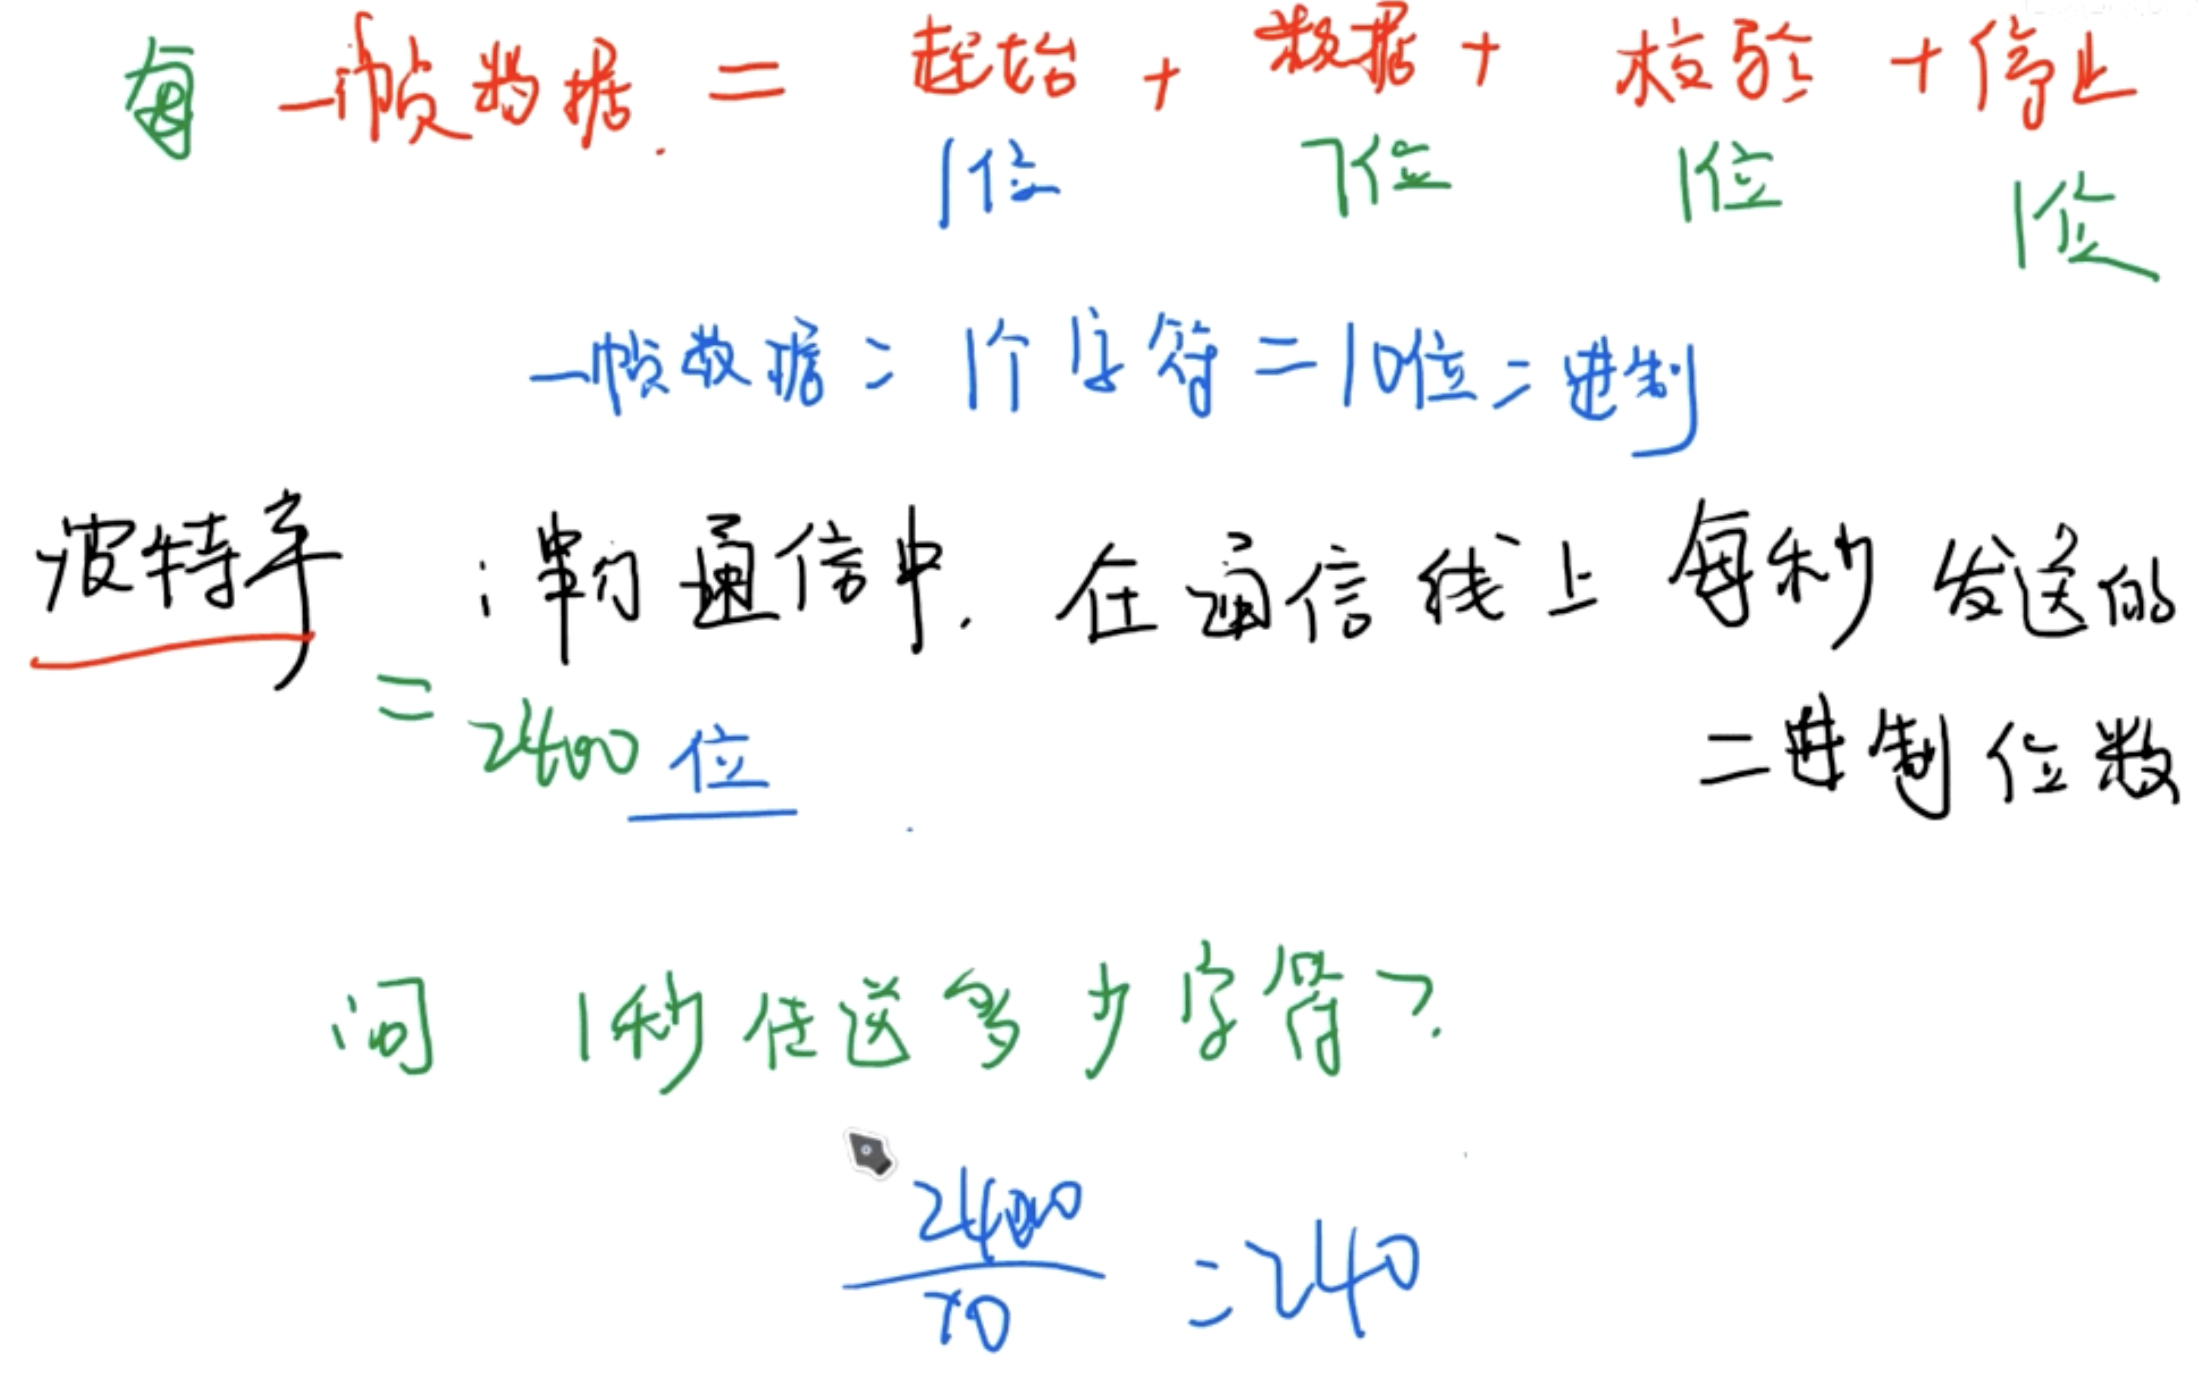 每一帧数据. = 起始 + 数据 + 校验 + 停止
1位 7位 1位 1位
一帧数据 = 1个字符 = 10位二进制
波特率 : 串行通信中. 在通信线上每秒发送的
二进制位数
= 2400 位
问 1秒传送多少字符?
2400
10
= 240